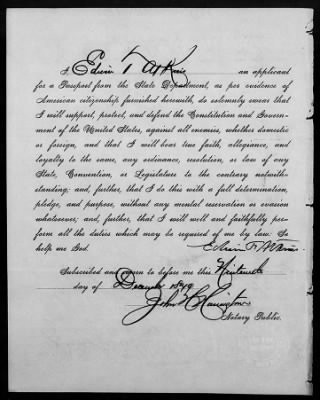 I, Edwin F. Atkins an applicant
for a Passport from the State Department, as per evidence of
American citizenship furnished herewith, do solemnly swear that
I will support, protect, and defend the Constitution and Govern-
ment of the United States, against all enemies, whether domestic
or foreign, and that I will bear true faith, allegiance, and
loyalty to the same, any ordinance, resolution, or law of any
State, Convention, or Legislature to the contrary notwith-
standing; and, further, that I do this with a full determination,
pledge, and purpose, without any mental reservation or evasion
whatsoever; and, further, that I will well and faithfully per-
form all the duties which may be required of me by law. So
help me God.
Edwin F. Atkins
Subscribed and sworn to before me this Nineteenth
day of December 1879
John Harrington
Notary Public.